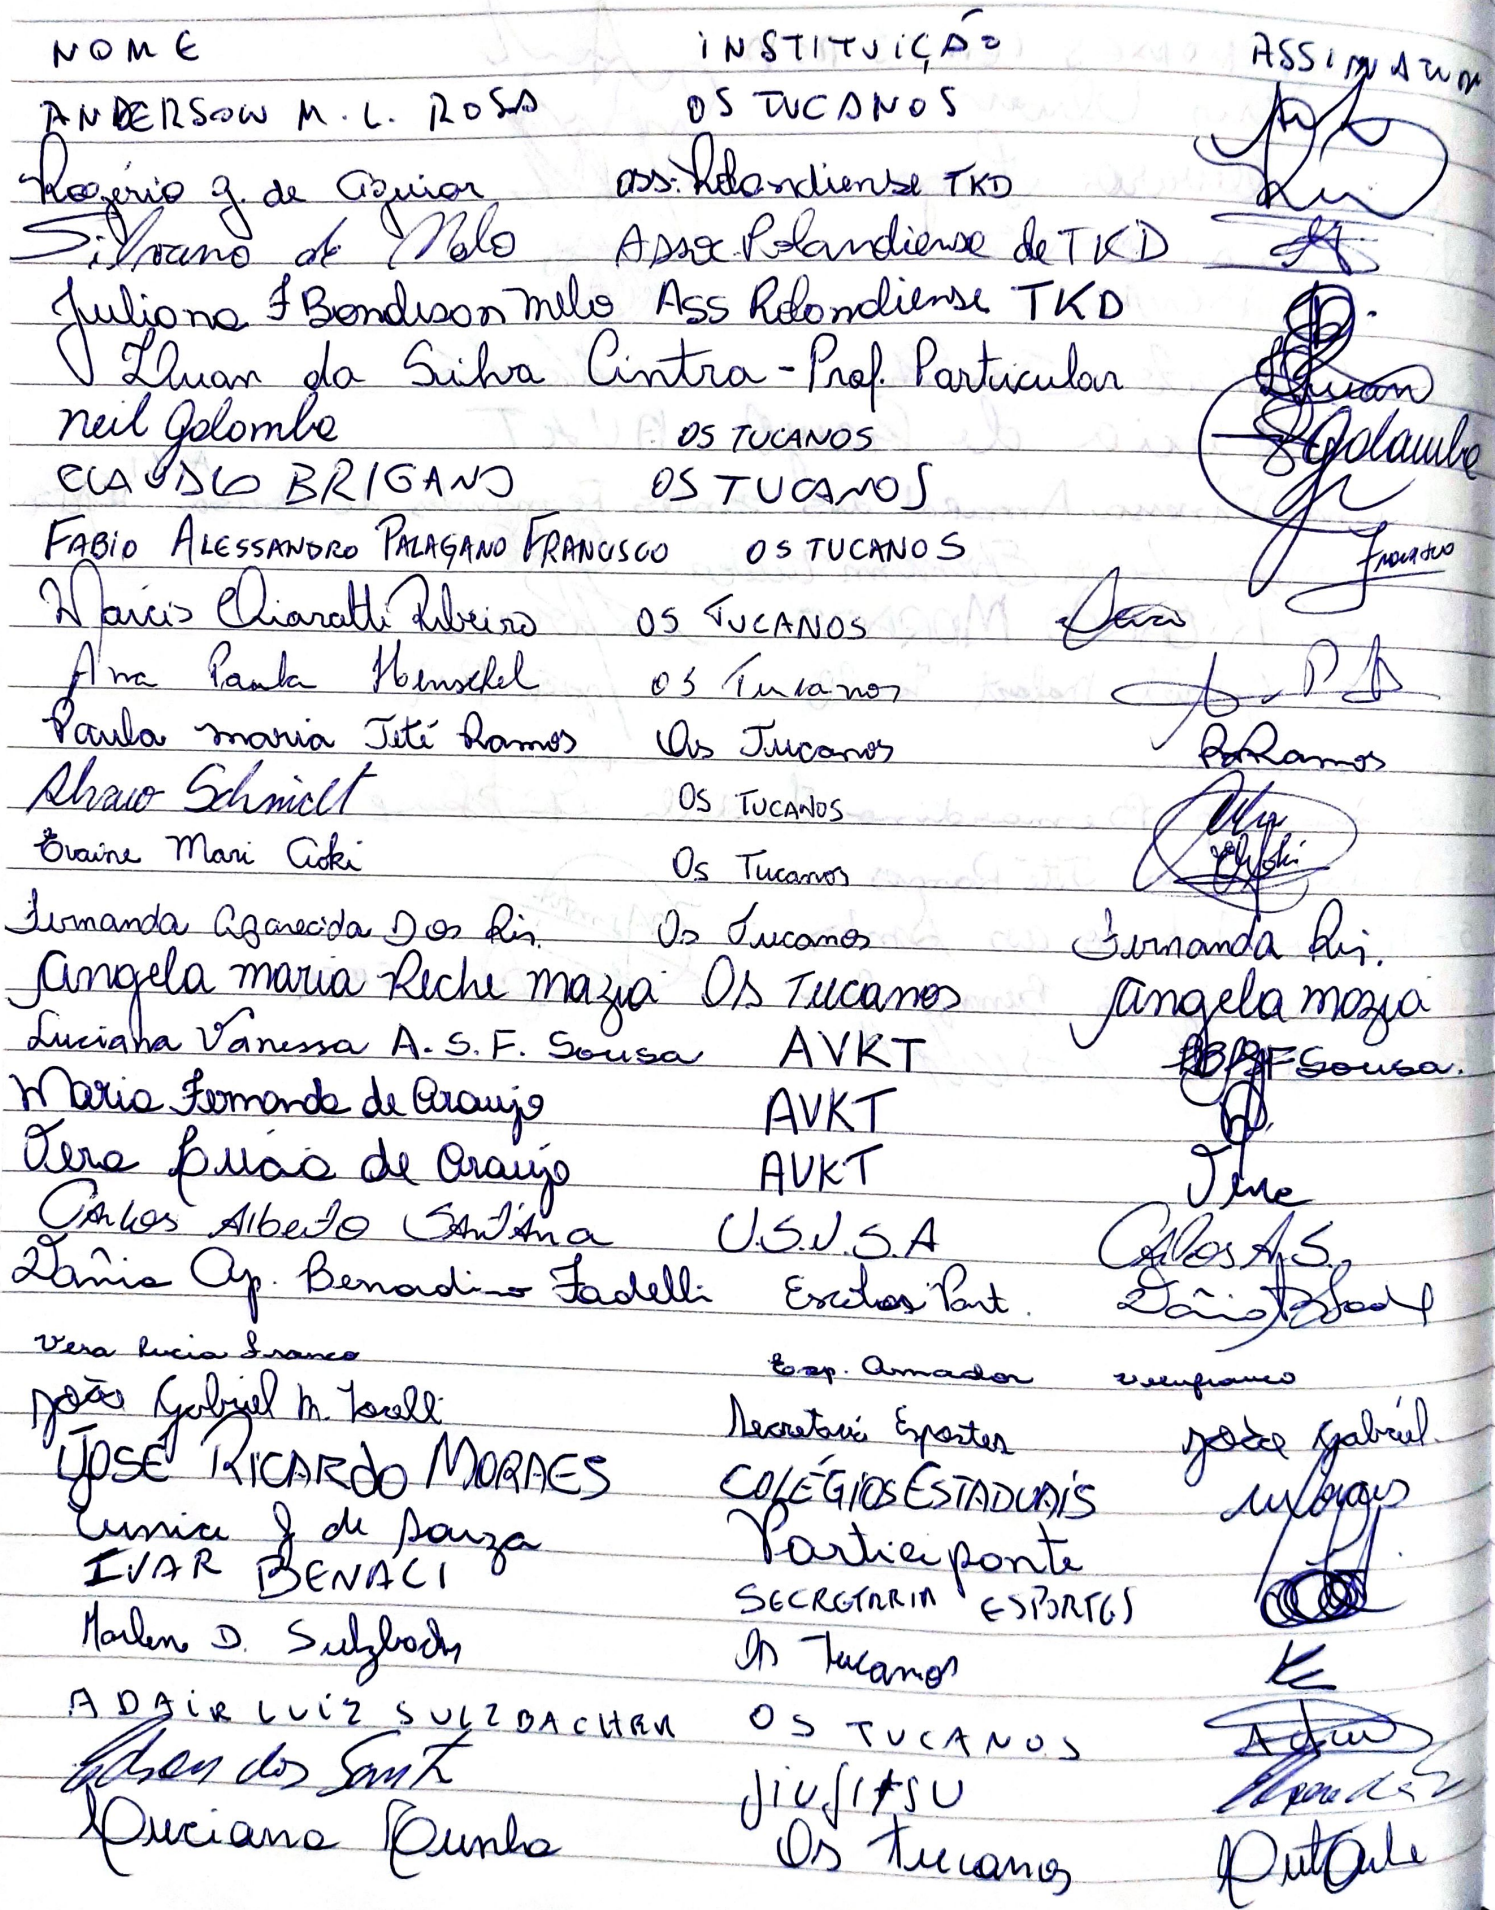 NOME INSTITUIÇÃO ASSINATURA
ANDERSON M. L. ROSA OS TUCANOS
Rogério G. de Aguiar ass. Rolandiense TKD
Silvano de Melo Assoc. Rolandiense de TKD
Juliana F Bondison Melo Ass Rolandiense TKD
Lluan da Silva Cintra - Prof. Particular Lluan
Neil Golombe OS TUCANOS Golombe
CLAUDIO BRIGANO OS TUCANOS
FABIO ALESSANDRO PALAGANO FRANCISCO OS TUCANOS Francisco
Chiaratti Ribeiro OS TUCANOS
Ana Paula Henschel OS Tucanos
Paula Maria Teté Ramos Os Tucanos Ramos
Alvaro Schmidt OS TUCANOS
Mari Aoki Os Tucanos
Fernanda Aparecida Dos Reis. Os Tucanos Fernanda Reis.
Angela Maria Reche Mazia Os Tucanos Angela Mazia
Luciana Vanessa A. S. F. Sousa AVKT F Sousa.
Maria Fernanda de Araujo AVKT
Vera Lúcia de Araujo AVKT Vera
Carlos Alberto Sant'Ana U.S.J.S.A Carlos A.S.
Tânia Ap. Benardino Fadelli Escolas Part. Tânia
Vera Lucia Franco Esp. Amador Verafranco
João Gabriel M. Secretaria Esportes João Gabriel.
JOSÉ RICARDO MORAES COLÉGIOS ESTADUAIS Moraes
Eunice J de Souza Participante
IVAR BENACI SECRETARIA ESPORTES
Marlene D. Sulzbacher Os Tucanos
ADAIR LUIZ SULZBACHER OS TUCANOS
Edson dos Santos JIU JITSU
Luciana Cunha Os Tucanos